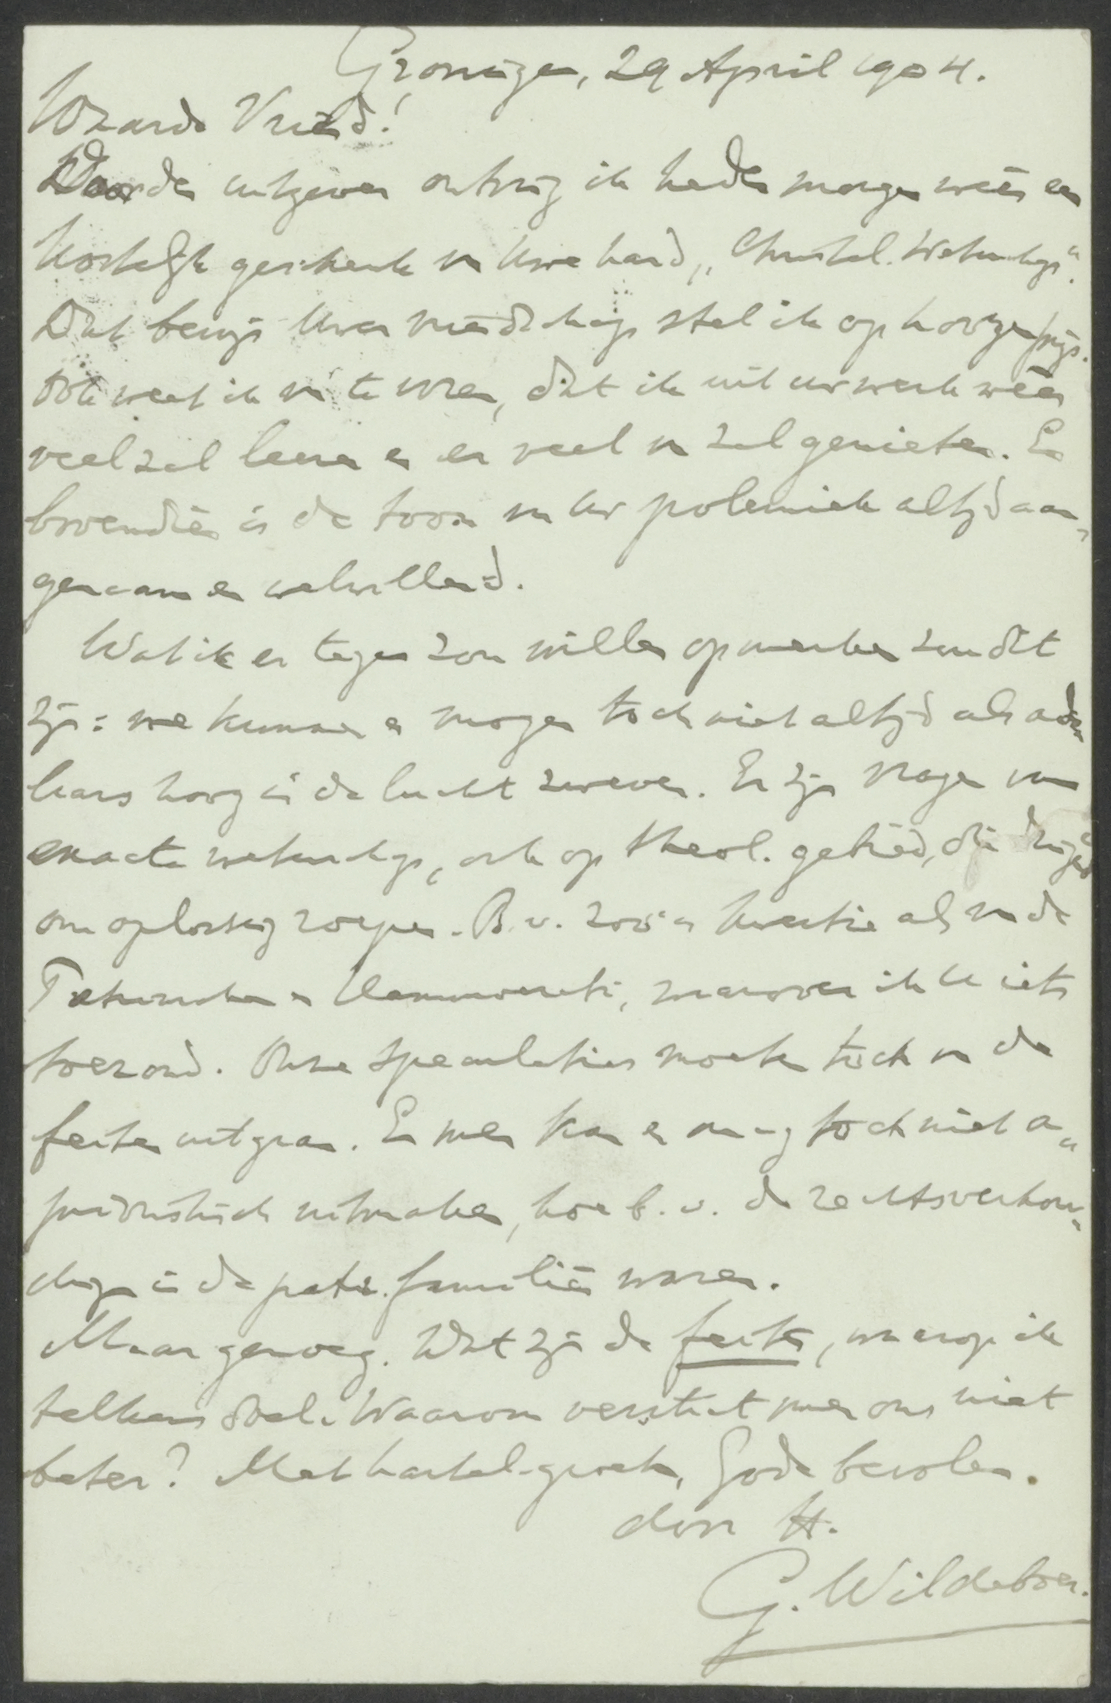 Groningen, 29 April 1904.
Waarde Vriend!
Door den uitgever ontving ik heden morgen weêr een
kostelijk geschenk van Uwe hand, „Christel. Wetensch."
Dat bewijs Uwer vriendschap stel ik op hoogen prijs.
Ook weet ik van te voren, dat ik uit uw werk weêr
veel zal leeren en er veel van zal genieten. En
bovendien is de toon van Uw polemiek altijd aan-
genaam en welwillend.
Wat ik er tegen zou willen opmerken zou dit
zijn: we kunnen en mogen toch niet altijd als ade-
laars hoog in de lucht zweven. Er zijn vragen van
exacte wetensch., ook op theol. gebied, die dringend
om oplossing roepen. B.v. zoo'n kwestie als van de
Hammurabi, waarover ik U iets
toezond. Onze speculaties moeten toch van de
feiten uitgaan. En men kan en mag toch niet a-
prioristisch uitmaken, hoe b.v. de rechtsverhou-
dingen in de patr. familiën waren.
Maar genoeg. Dat zijn de feiten, waarop ik
telkens doel. Waarom verstaat men ons niet
beter? Met hartel. groeten, Gode bevolen.
door tt.
G. Wildeboer.